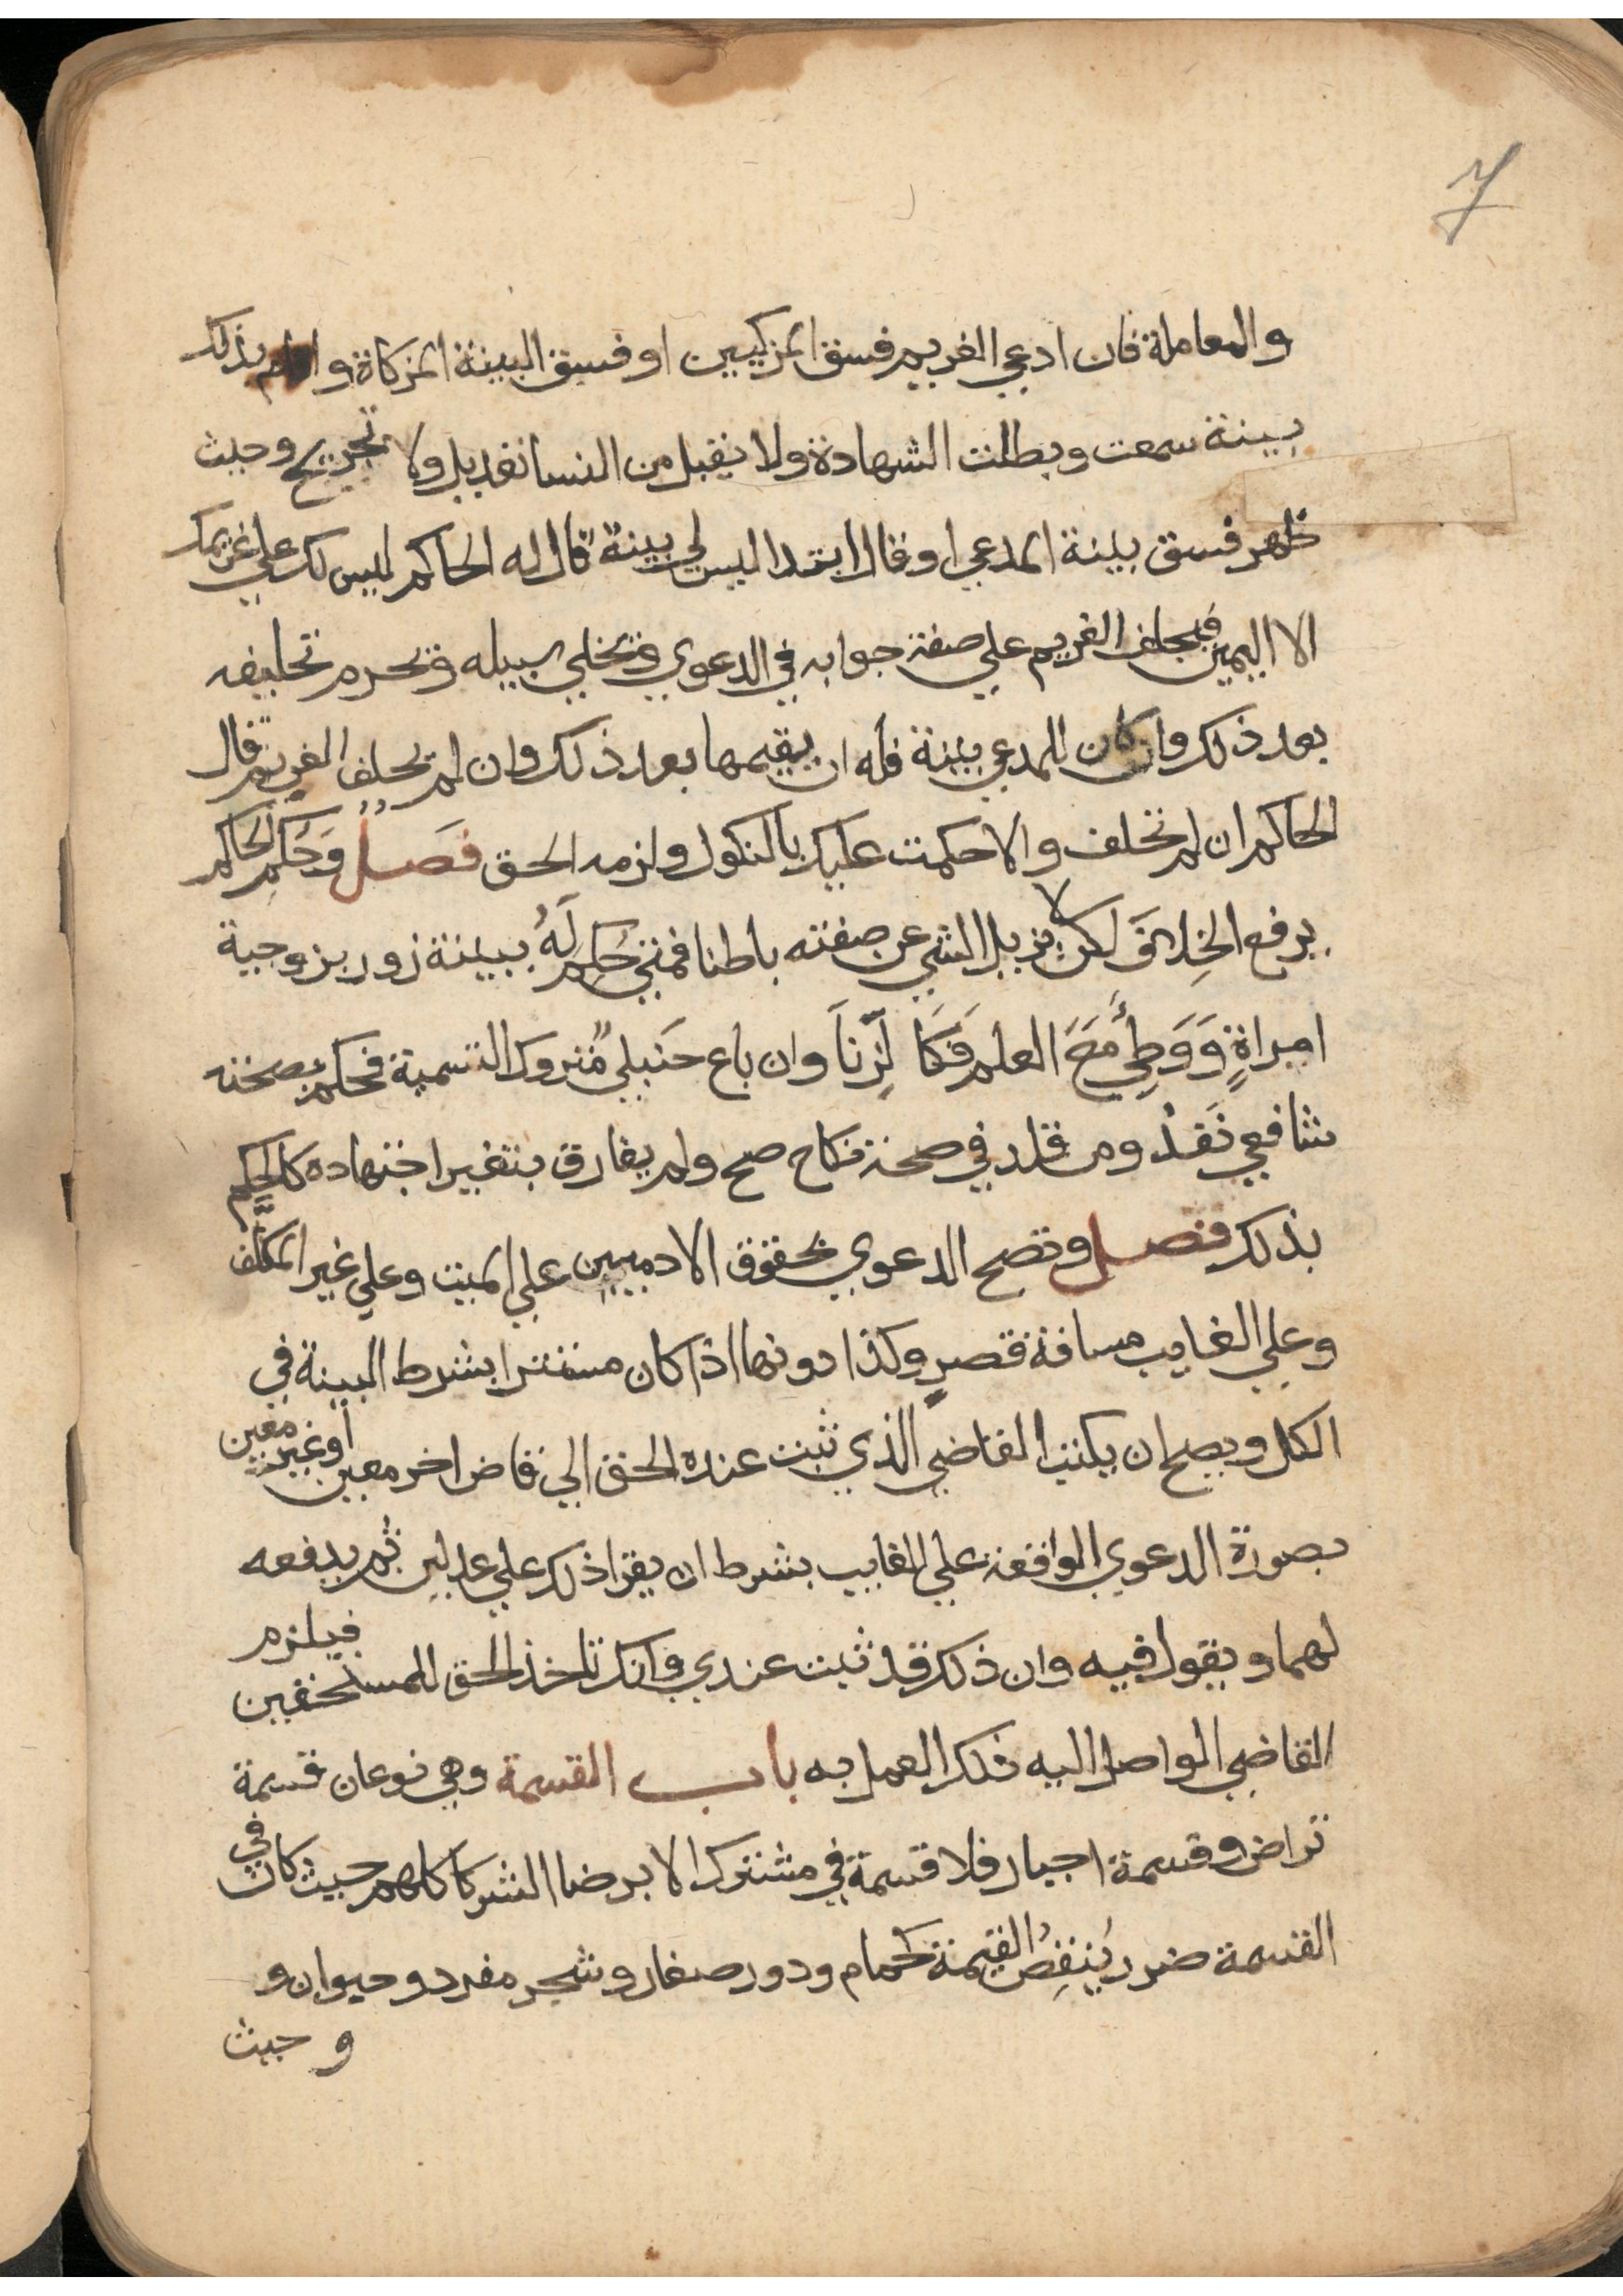 7
والمعاملة فان ادعي الغريم فسق المزكيين او فسق البينة المزكاة واقام بذلك
بينة سمعت وبطلت الشهادة ولا يقبل من النسا تعديل ولا تجريح وحيث
ظهر فسق بينة المدعي او قال ابتدا ليس لي بينة قال له الحاكم ليس لك علي غريمك
الا اليمين فيحلف الغريم علي صفة جوابه في الدعوي ويخلي سبيله ويحرم تحليفه
بعد ذلك وان كان للمدعي بينة فله ان يقيمها بعد ذلك وان لم يحلف الغريم قال
الحاكم ان لم تحلف والا حكمت عليك بالنكول ولزمه الحق فَصلٌ وَحُكم الحَاكم
يرفع الخِلافَ لكن لا يزيل الشي عن صفته باطنا فمتي حُكِم لَهُ ببينة زور بزوجية
امراةٍ وَوَطِئَ مَعَ العلم فَكَالزِّنَا وان باع حَنبلي متروك التسمية فحكم بصحته
شافعي نَفَذ ومن قلد في صحة نكاح صح ولم يفارق بتغير اجتهاده كالحُكم
بذلك فصل وتصح الدعوي بحقوق الادميين علي الميت وعلي غير المكلَّف
وعلي الغايب مسافة قصرٍ وكذا دونها اذا كان مستترا بشرط البينة في
الكل ويصح ان يكتب القاضي الذي ثبت عنده الحق الي قاض اخر معين او غير معين
بصورة الدعوي الواقعة علي الغايب بشرط ان يقرا ذلك علي عدلين ثم يدفعه
لهما ويقول فيه وان ذلك قد ثبت عندي وانك تاخذ الحق للمستحقين فيلزم
القاضي الواصل اليه ذلك العمل به باب القسمة وهي نوعان قسمة
تراض وقسمة اجبار فلا قسمة في مشترك الا برضا الشركا كلهم حيث كان في
القسمة ضرر يُنقِصُ القيمة كحمام ودور صغار وشجر مفرد وحيوان و
وحيث